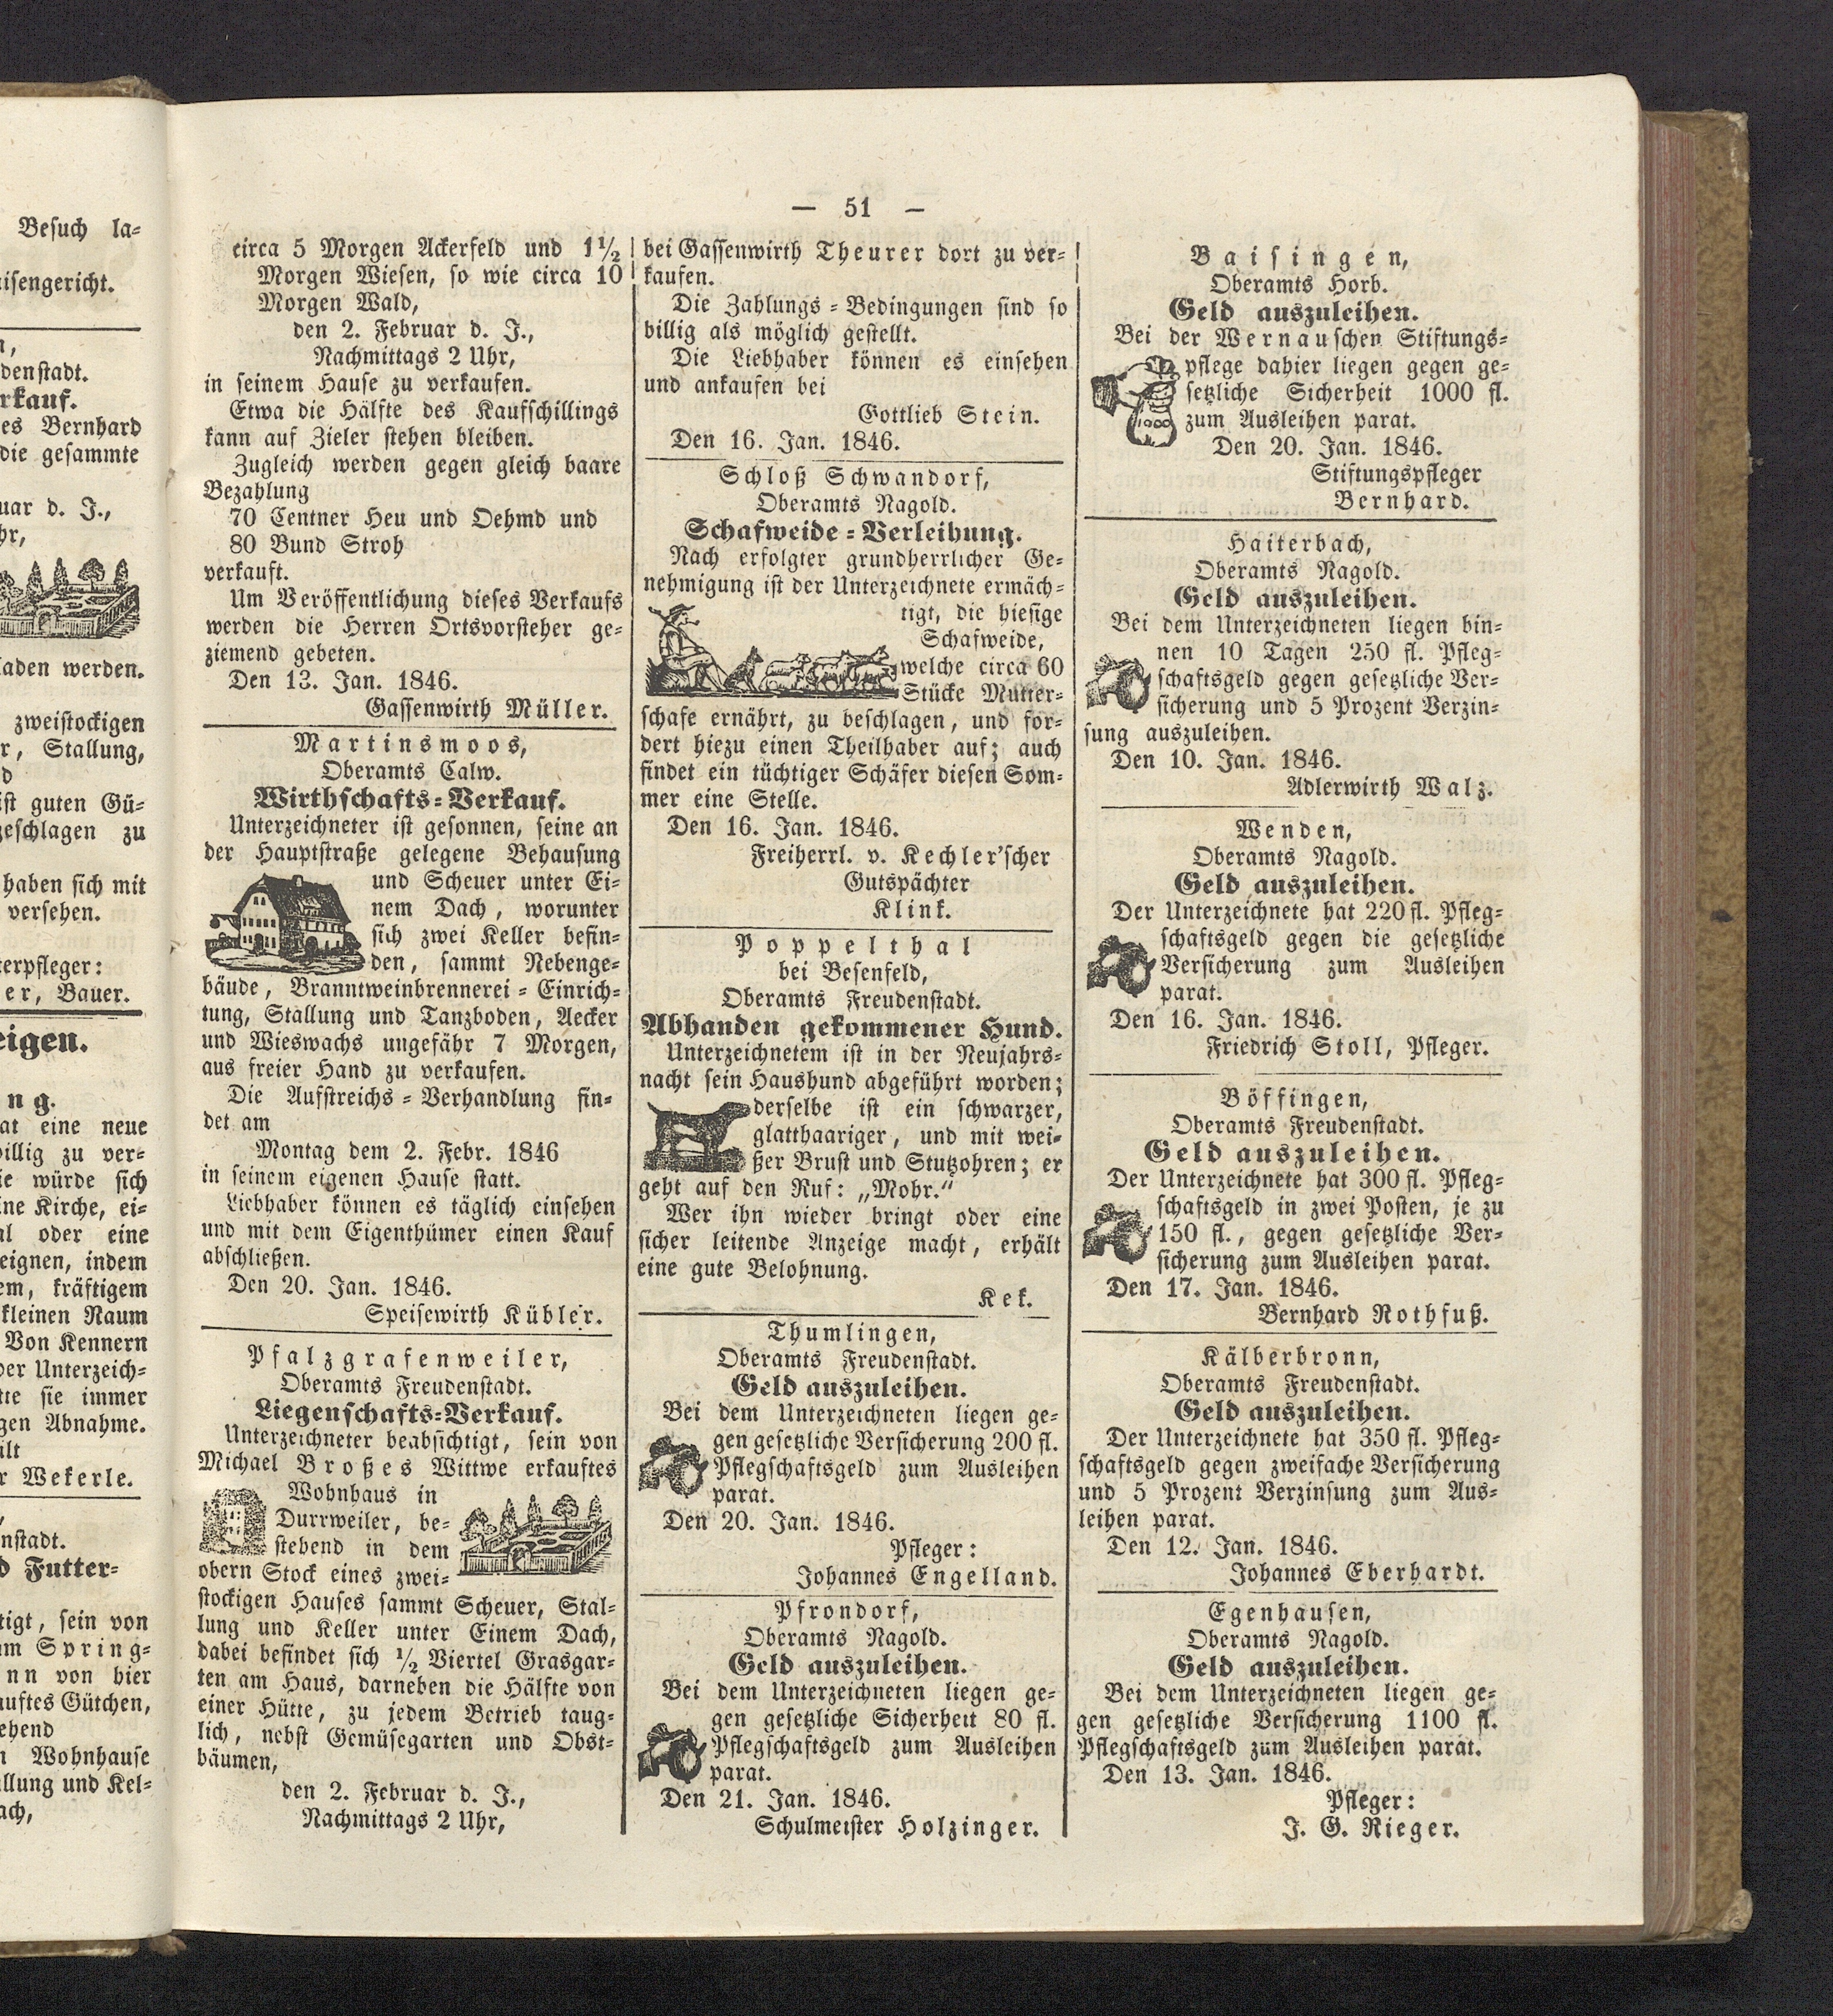 Besuch la-
isengericht.
n,
denstadt.
rkauf.
es Bernhard
die gesammte
uar d. J.,
hr,
laden werden.
zweistockigen
r, Stallung,
d
ist guten Gü-
geschlagen zu
haben sich mit
versehen.
terpfleger:
er, Bauer.
eigen.
ng.
at eine neue
billig zu ver-
ie würde sich
ine Kirche, ei-
al oder eine
eignen, indem
em, kräftigem
kleinen Raum
Von Kennern
der Unterzeich-
tte sie immer
gen Abnahme.
ilt
r Wekerle.
,
nstadt.
d Futter-
tigt, sein von
am Spring-
nn von hier
auftes Gütchen,
ehend
n Wohnhause
allung und Kel-
ach,
— 51 —
circa 5 Morgen Ackerfeld und 1½
Morgen Wiesen, so wie circa 10
Morgen Wald,
den 2. Februar d. J.,
Nachmittags 2 Uhr,
in seinem Hause zu verkaufen.
Etwa die Hälfte des Kaufschillings
kann auf Zieler stehen bleiben.
Zugleich werden gegen gleich baare
Bezahlung
70 Centner Heu und Oehmd und
80 Bund Stroh
verkauft.
Um Veröffentlichung dieses Verkaufs
werden die Herren Ortsvorsteher ge-
ziemend gebeten.
Den 13. Jan. 1846.
Gassenwirth Müller.
Martinsmoos,
Oberamts Calw.
Wirthschafts-Verkauf.
Unterzeichneter ist gesonnen, seine an
der Hauptstraße gelegene Behausung
und Scheuer unter Ei-
nem Dach, worunter
sich zwei Keller befin-
den, sammt Nebenge-
bäude, Branntweinbrennerei-Einrich-
tung, Stallung und Tanzboden, Aecker
und Wieswachs ungefähr 7 Morgen,
aus freier Hand zu verkaufen.
Die Aufstreichs-Verhandlung fin-
det am
Montag dem 2. Febr. 1846
in seinem eigenen Hause statt.
Liebhaber können es täglich einsehen
und mit dem Eigenthümer einen Kauf
abschließen.
Den 20. Jan. 1846.
Speisewirth Kübler.
Pfalzgrafenweiler,
Oberamts Freudenstadt.
Liegenschafts-Verkauf.
Unterzeichneter beabsichtigt, sein von
Michael Broßes Wittwe erkauftes
Wohnhaus in
Durrweiler, be-
stehend in dem
obern Stock eines zwei-
stockigen Hauses sammt Scheuer, Stal-
lung und Keller unter Einem Dach,
dabei befindet sich ½ Viertel Grasgar-
ten am Haus, darneben die Hälfte von
einer Hütte, zu jedem Betrieb taug-
lich, nebst Gemüsegarten und Obst-
bäumen,
den 2. Februar d. J.,
Nachmittags 2 Uhr,
bei Gassenwirth Theurer dort zu ver-
kaufen.
Die Zahlungs-Bedingungen sind so
billig als möglich gestellt.
Die Liebhaber können es einsehen
und ankaufen bei
Gottlieb Stein.
Den 16. Jan. 1846.
Schloß Schwandorf,
Oberamts Nagold.
Schafweide-Verleihung.
Nach erfolgter grundherrlicher Ge-
nehmigung ist der Unterzeichnete ermäch-
tigt, die hiesige
Schafweide,
welche circa 60
Stücke Mutter-
schafe ernährt, zu beschlagen, und for-
dert hiezu einen Theilhaber auf; auch
findet ein tüchtiger Schäfer diesen Som-
mer eine Stelle.
Den 16. Jan. 1846.
Freiherrl. v. Kechler'scher
Gutspächter
Klink.
Poppelthal
bei Besenfeld,
Oberamts Freudenstadt.
Abhanden gekommener Hund.
Unterzeichnetem ist in der Neujahrs-
nacht sein Haushund abgeführt worden;
derselbe ist ein schwarzer,
glatthaariger, und mit wei-
ßer Brust und Stutzohren; er
geht auf den Ruf: „Mohr.“
Wer ihn wieder bringt oder eine
sicher leitende Anzeige macht, erhält
eine gute Belohnung.
Kek.
Thumlingen,
Oberamts Freudenstadt.
Geld auszuleihen.
Bei dem Unterzeichneten liegen ge-
gen gesetzliche Versicherung 200 fl.
Pflegschaftsgeld zum Ausleihen
parat.
Den 20. Jan. 1846.
Pfleger:
Johannes Engelland.
Pfrondorf,
Oberamts Nagold.
Geld auszuleihen.
Bei dem Unterzeichneten liegen ge-
gen gesetzliche Sicherheit 80 fl.
Pflegschaftsgeld zum Ausleihen
parat.
Den 21. Jan. 1846.
Schulmeister Holzinger.
Baisingen,
Oberamts Horb.
Geld auszuleihen.
Bei der Wernauschen Stiftungs-
pflege dahier liegen gegen ge-
setzliche Sicherheit 1000 fl.
zum Ausleihen parat.
1000
Den 20. Jan. 1846.
Stiftungspfleger
Bernhard.
Haiterbach,
Oberamts Nagold.
Geld auszuleihen.
Bei dem Unterzeichneten liegen bin-
nen 10 Tagen 250 fl. Pfleg-
schaftsgeld gegen gesetzliche Ver-
sicherung und 5 Prozent Verzin-
sung auszuleihen.
Den 10. Jan. 1846.
Adlerwirth Walz.
Wenden,
Oberamts Nagold.
Geld auszuleihen.
Der Unterzeichnete hat 220 fl. Pfleg-
schaftsgeld gegen die gesetzliche
Versicherung zum Ausleihen
parat.
Den 16. Jan. 1846.
Friedrich Stoll, Pfleger.
Böffingen,
Oberamts Freudenstadt.
Geld auszuleihen.
Der Unterzeichnete hat 300 fl. Pfleg-
schaftsgeld in zwei Posten, je zu
150 fl., gegen gesetzliche Ver-
sicherung zum Ausleihen parat.
Den 17. Jan. 1846.
Bernhard Rothfuß.
Kälberbronn,
Oberamts Freudenstadt.
Geld auszuleihen.
Der Unterzeichnete hat 350 fl. Pfleg-
schaftsgeld gegen zweifache Versicherung
und 5 Prozent Verzinsung zum Aus-
leihen parat.
Den 12. Jan. 1846.
Johannes Eberhardt.
Egenhausen,
Oberamts Nagold.
Geld auszuleihen.
Bei dem Unterzeichneten liegen ge-
gen gesetzliche Versicherung 1100 fl.
Pflegschaftsgeld zum Ausleihen parat.
Den 13. Jan. 1846.
Pfleger:
J. G. Rieger.